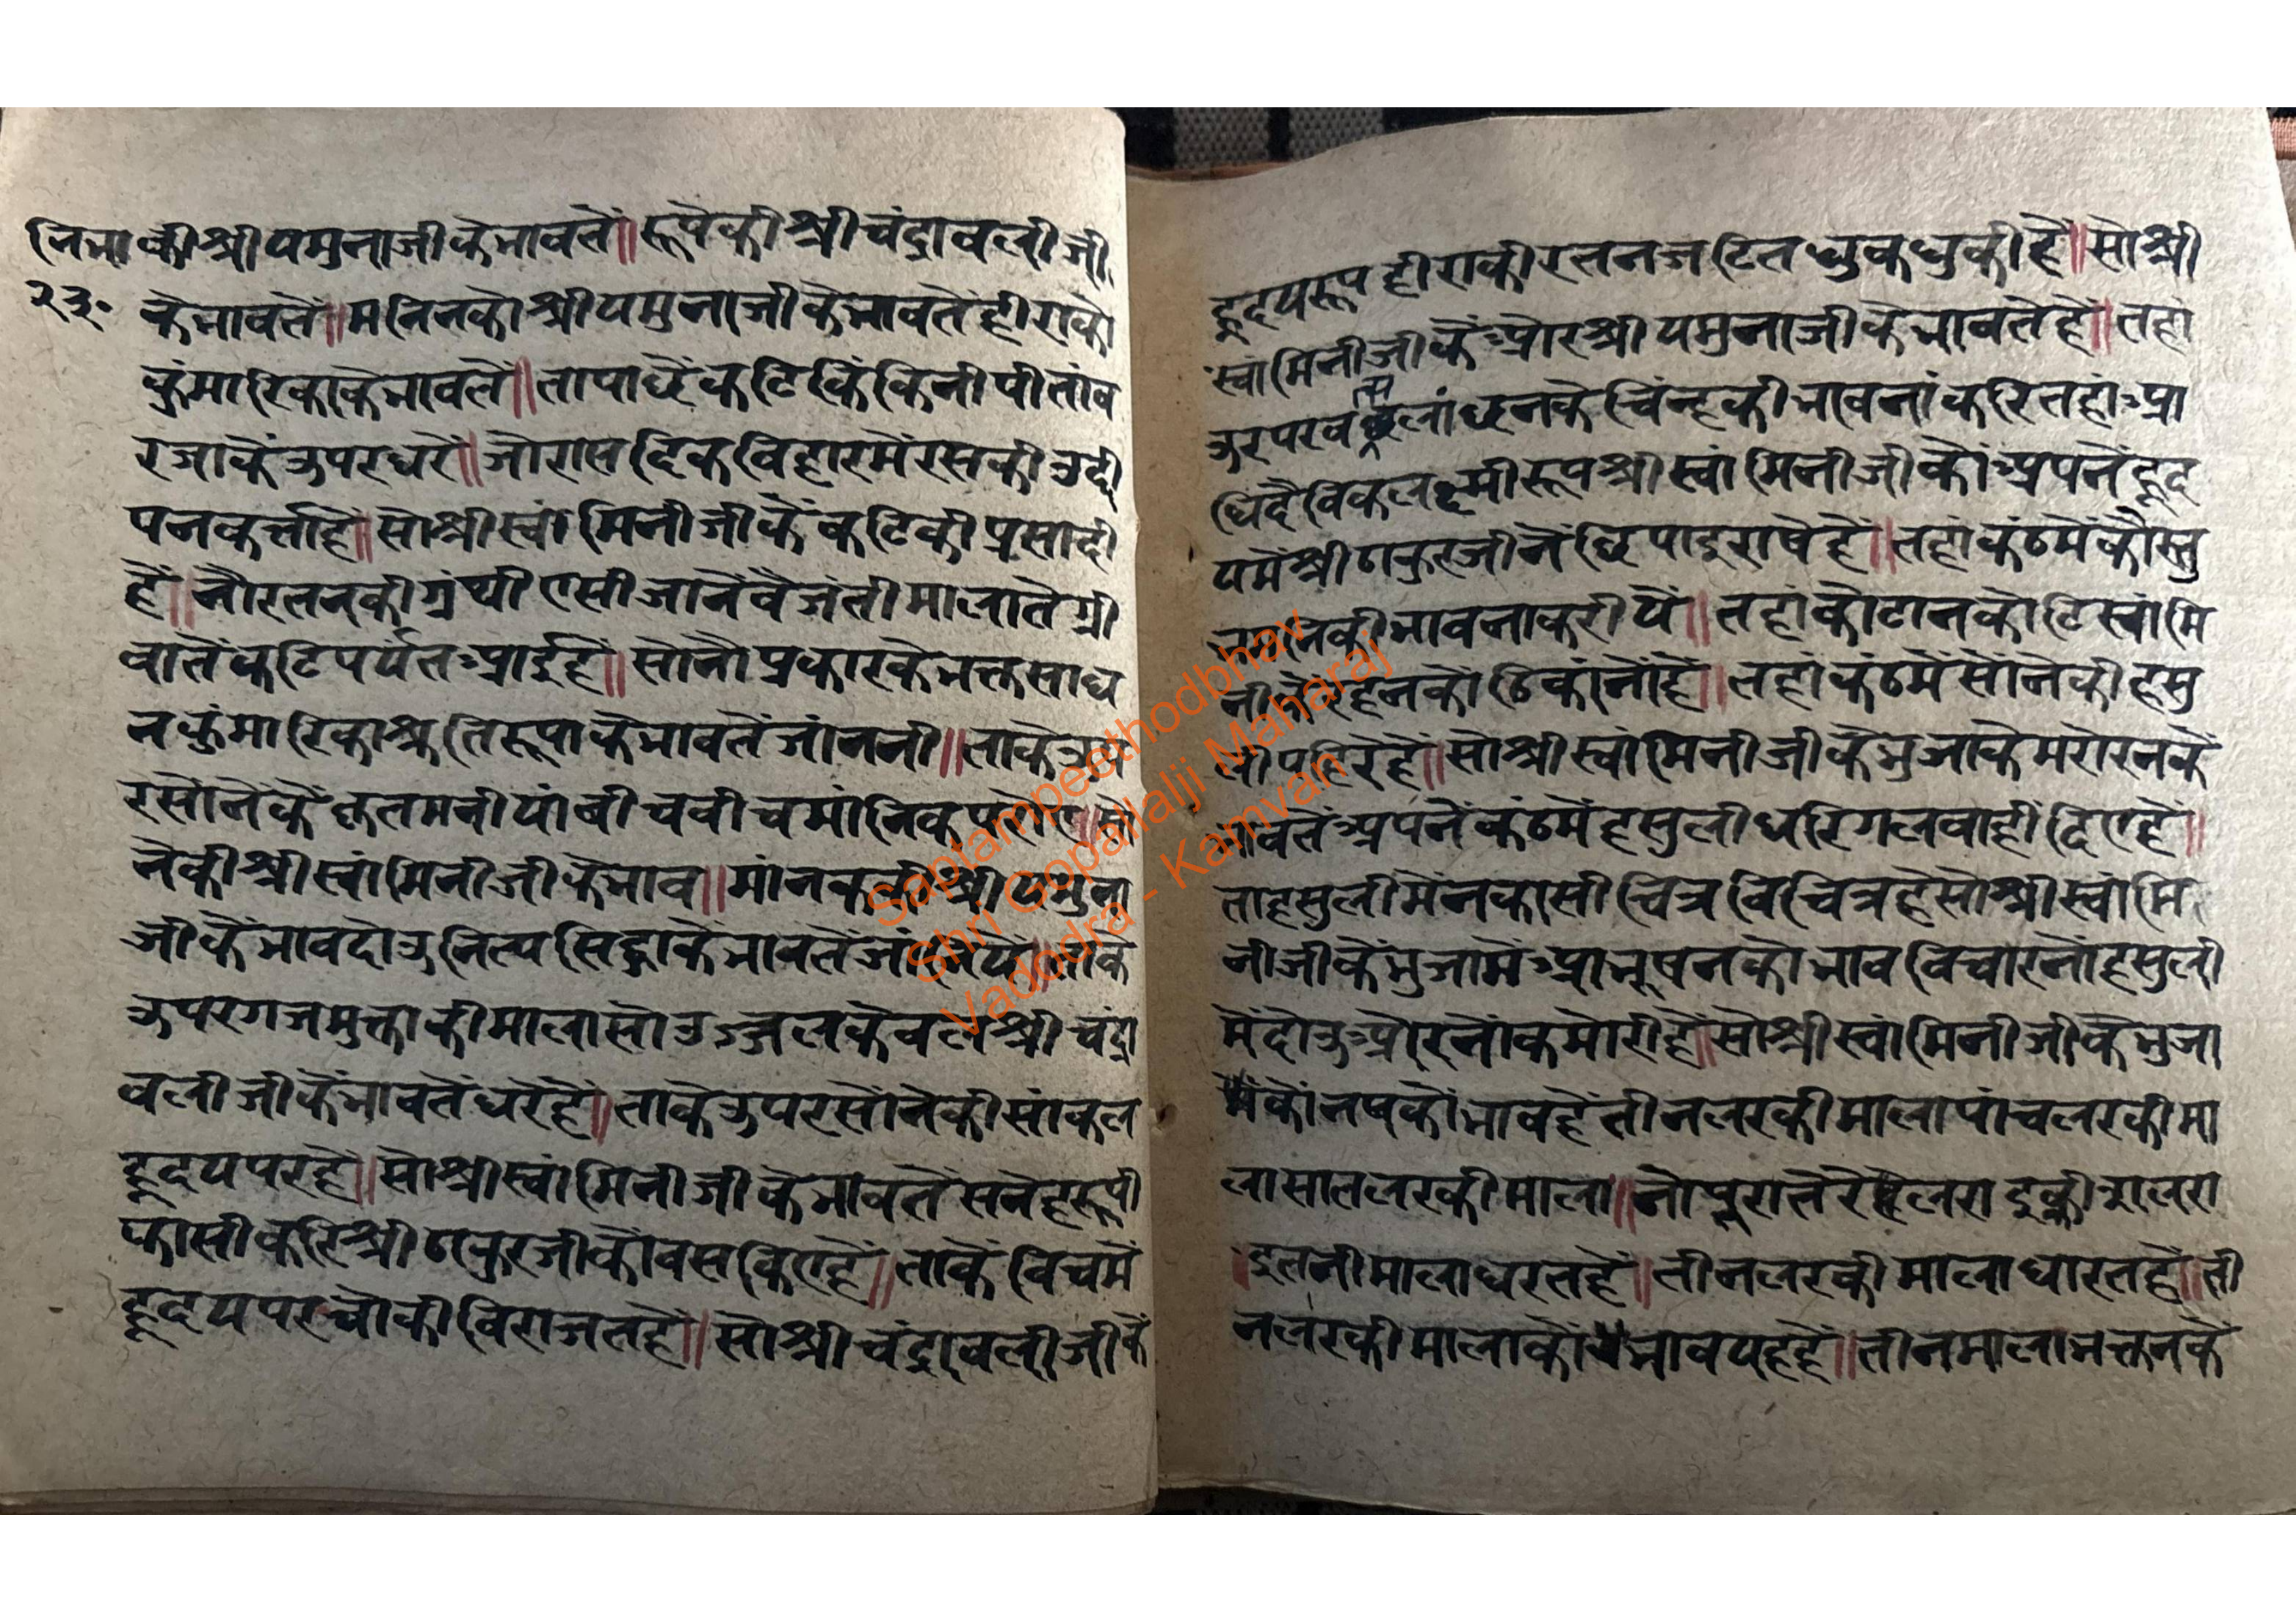 नि भा की श्री यमुनाजी के भावतें ॥ रूपेकी श्री चंद्रावलीजी
२३॰ के भावतें ॥ मनिनको श्री यमुनाजी के भावतें हीराको
कुंमारिकाके भावतें ॥ तापाछें कटि किंकिनी पीतांब
रजाकें उपर धरें ॥ जो रासादिक विहारमें रसकी उद्दी
पनकर्त्ता है ॥ सो श्री स्वांमिनीजी कें कटिकी प्रसादी
हैं ॥ नौ रतनकी गुंथी एसी जानें वैजंती माला ते ग्री
वातें कटि पर्यंत आई हैं ॥ सो नौ प्रकारके भक्त साध
न कुंमारिका श्रुतिरूपा के भावतें जांननी ॥ ताके उप
र सोंनेकें फूल मनी यां बीच बीच मांनिक
नेकी श्री स्वांमिनीजी के भाव ॥ मांनककी श्री यमुना
जी कें भाव दोउ नित्य सिद्धाकें भावतें जांनियें ॥ ताके
उपर गजमुक्ताकी माला सो उज्जल केवल श्री चंद्रा
वलीजी कें भावतें धरें हैं ॥ ताके उपर सोंनेकी सांकल
हृदय पर हैं ॥ सो श्री स्वांमिनीजी के भावतें सनेहरूपी
फासी करि श्री ठाकुरजीकों बस किए हैं ॥ ताकें विचमें
हृदय पर चोकी विराजत हैं ॥ सो श्री चंद्रावलीजी कें
हृदयरूप हीराकी रतन जटित धुकधुकी हैं ॥ सो श्री
स्वांमिनीजी कें और श्री यमुनाजी के भावतें हैं ॥ तहां
उर पर लांछनके चिंन्हकी भावनां करि तहां आ
धिदैविक लक्ष्मीरूप श्री स्वांमिनीजी कों अपनें हृद
यमें श्री ठाकुरजीनें छिपाइ राषे हैं ॥ तहां कंठमें कौस्तु
भमनिकी भावना करीयें ॥ तहां कोटानकोटि स्वांमि
नीकें रहनकों ठिकांनों हैं ॥ तहां कंठमें सोंनेकी हसु
ली पहिरें हैं ॥ सो श्री स्वांमिनीजी के भुजाके मरोरनकें
भावतें अपनें कंठमें हसुली धरि गलवाही दिए हैं ॥
ता हसुलीमें नकासी चित्र विचित्र हैं सो श्री स्वांमि
नीजी के भुजामें आभूषनको भाव विचारनों हसुली
में दोउ ओर नोंकमोरी हैं ॥ सो श्री स्वांमिनीजी कें भुजा
में कों नषकों भाव हैं तीन लरकी माला पांच लरकी मा
ला सात लरकी माला ॥
इतनी माला धरत हैं ॥ तीन लरकी माला धारत हैं ॥ ती
न लरकी मालाकों भाव यह हैं ॥ तीन माला भक्तनकें
Saptampeethodbhav
Shri Gopallalji Maharaj
Vadodra - Kamvan